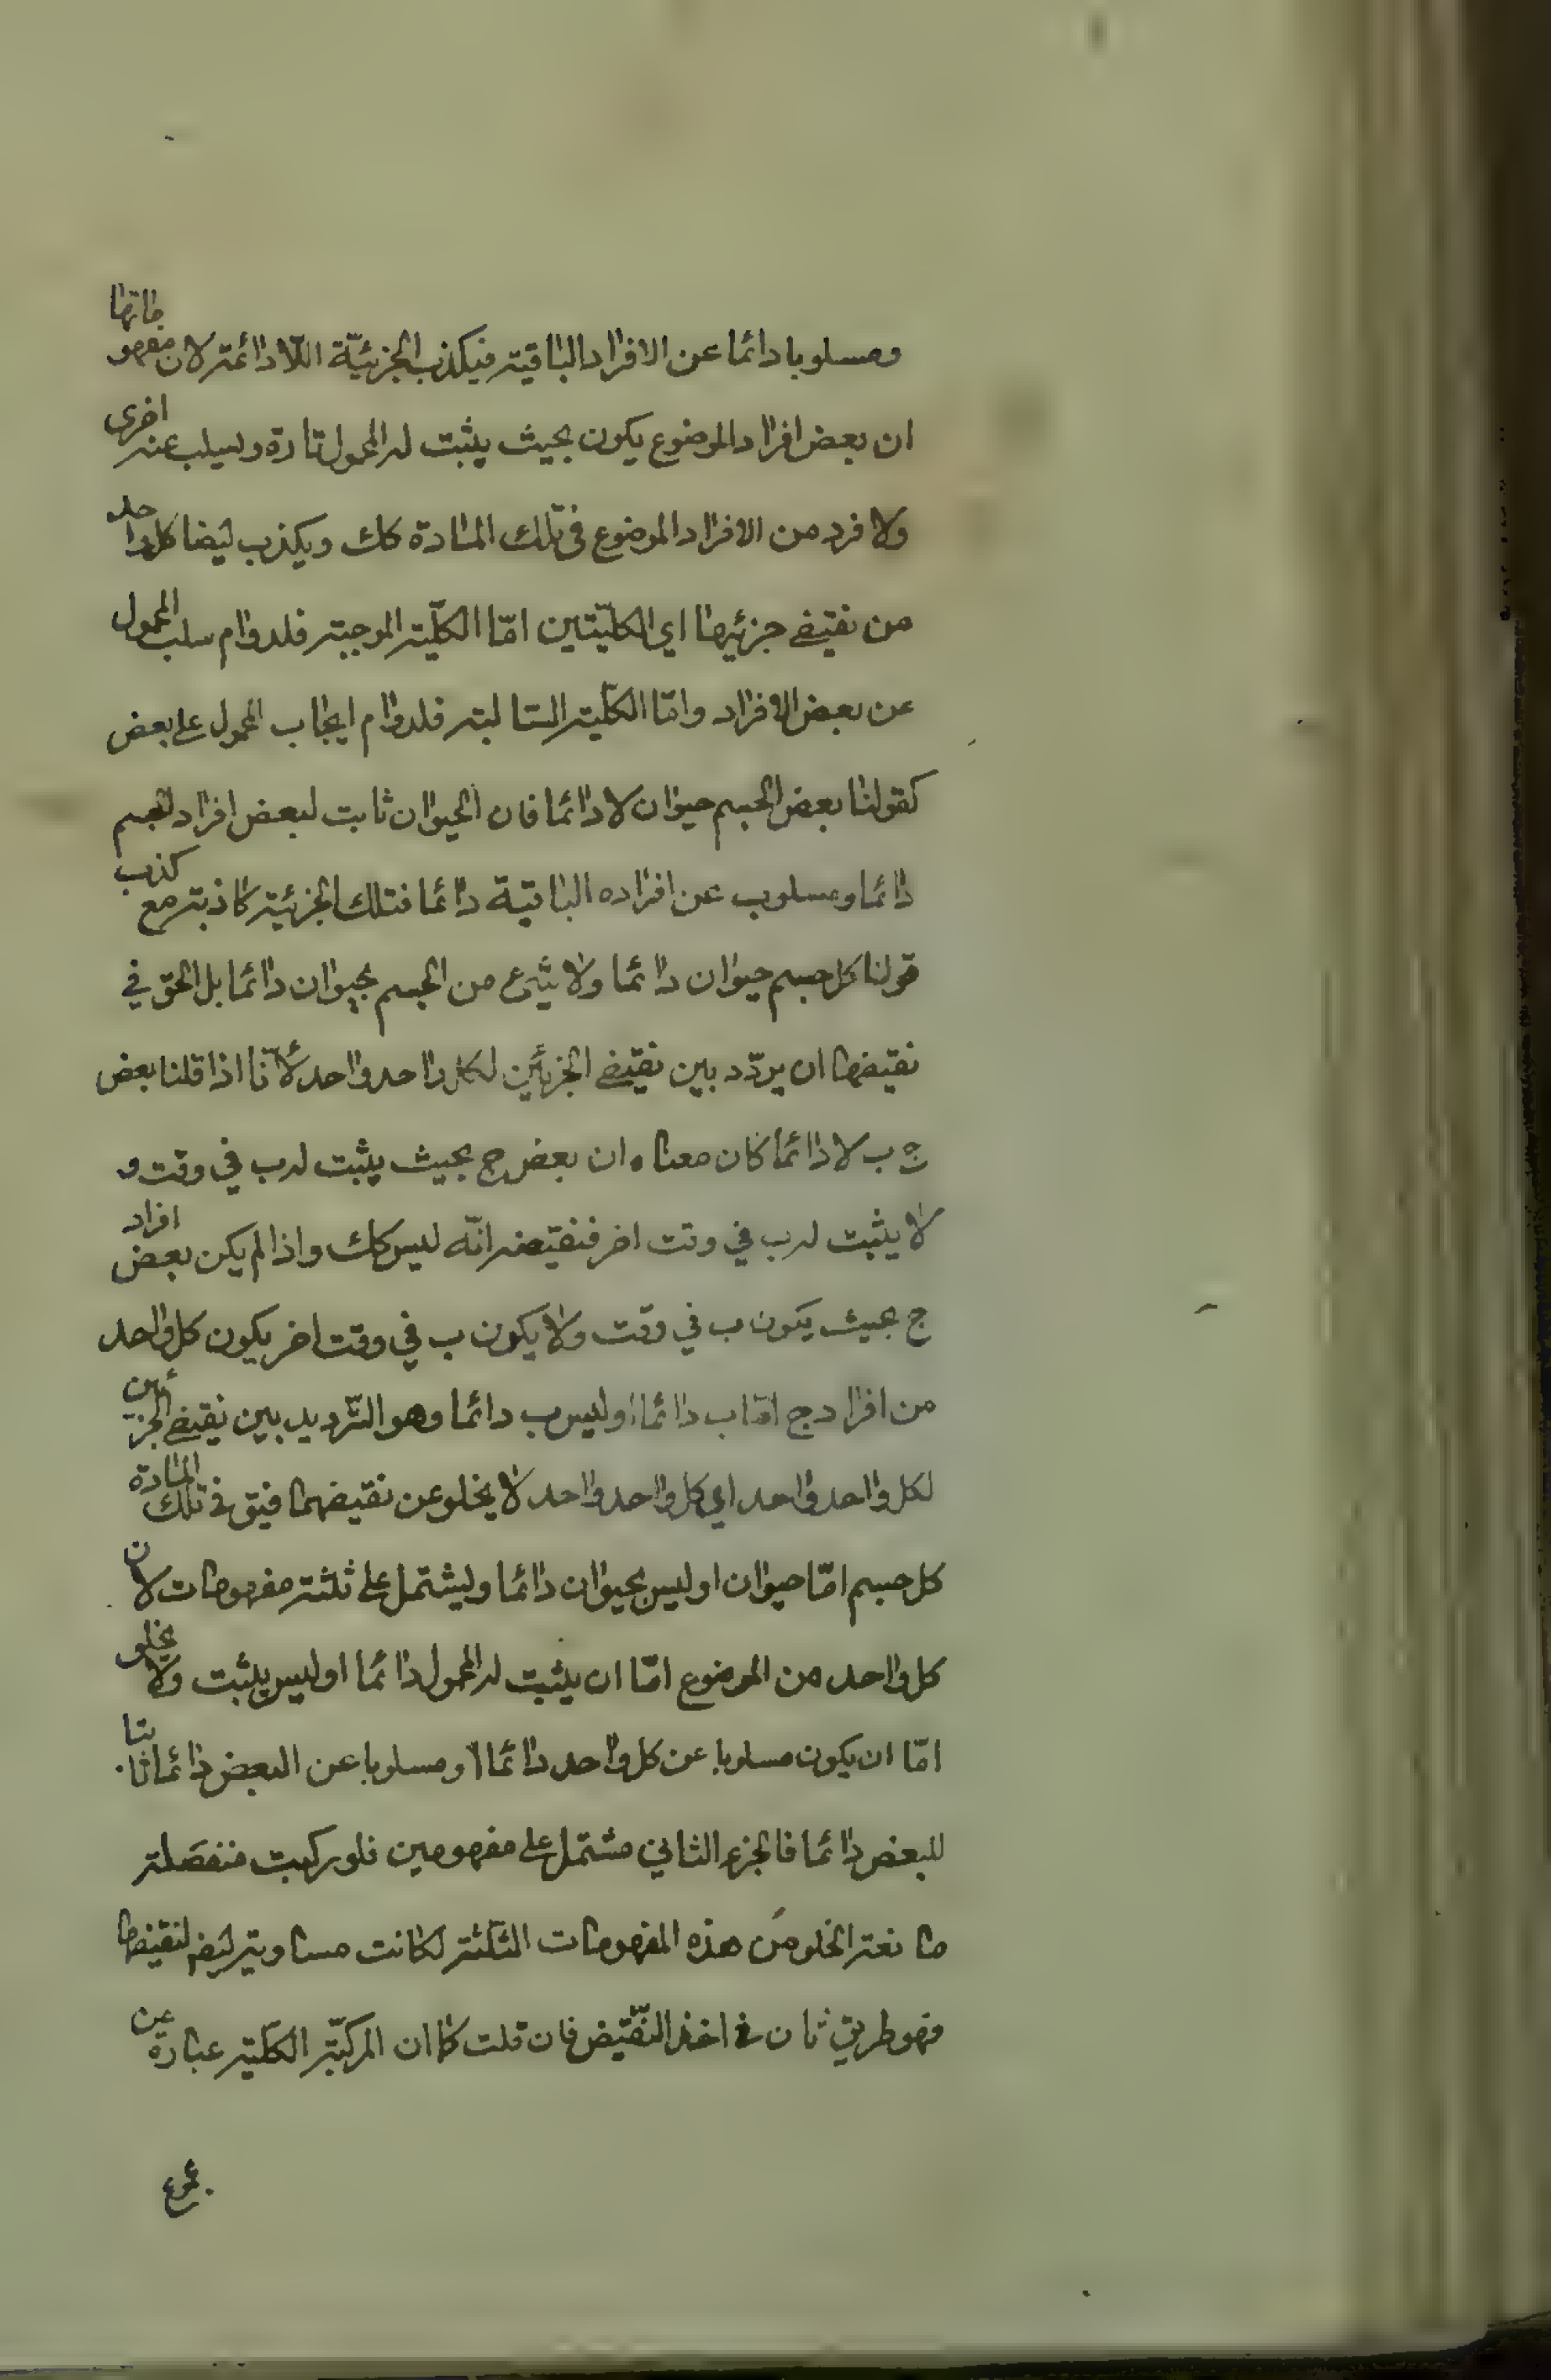 ومسلوبا دائما عن الافراد الباقية فيكذب الجزئيّة اللّادائمة لان مفهوماتها
ان بعض افراد الموضوع يكون بحيث يثبت له المحمول تارة ويسلب عنه اخرى
ولا فرد من الافراد الموضوع فى تلك المادة كك ويكذب ايضا كل واحد
من نقيضے جزئيها اي الكليّتين امّا الكلّية الموجبة فلدوام سلب المحمول
عن بعض الافراد وامّا الكلّية السّالبة فلدوام ايجاب المحمول على بعض
كقولنا بعض الجسم حيوان لا دائما فان الحيوان ثابت لبعض افراد الجسم
دائما ومسلوب عن افراده الباقية دائما فتلك الجزئية كاذبة مع كذب
قولنا كل جسم حيوان دائما ولا شئ من الجسم بحيوان دائما بل الحق في
نقيضها ان يردّد بين نقيضے الجزئين لكل واحد واحد لأنّا اذا قلنا بعض
ج ب لا دائما كان معناه ان بعض ج بحيث يثبت له ب في وقت و
لا يثبت له ب في وقت اخر فنقيضه انّه ليس كك واذا لم يكن بعض افراد
ج بحيث يكون ب في وقت ولا يكون ب في وقت اخر يكون كل واحد
من افراد ج امّا ب دائما او ليس ب دائما وهو التّرديد بين نقيضے الجزئين
لكل واحد واحد اي كل واحد واحد لا يخلو عن نقيضهما فيق فى تلك المادة
كل جسم امّا حيوان او ليس بحيوان دائما ويشتمل على ثلثة مفهومات لان
كل واحد من الموضوع امّا ان يثبت له المحمول دائما او ليس يثبت ولا يخلو
امّا ان يكون مسلوبا عن كل واحد دائما او مسلوبا عن البعض دائما ثابتا
للبعض دائما فالجزء الثاني مشتمل على مفهومين فلو ركبت منفصلة
مانعة الخلو من هذه المفهومات الثلثة لكانت مساوية ايضا لنقيضها
فهو طريق ثان فى اخذ النّقيض فان قلت كما ان المركبّة الكلّية عبارة عن